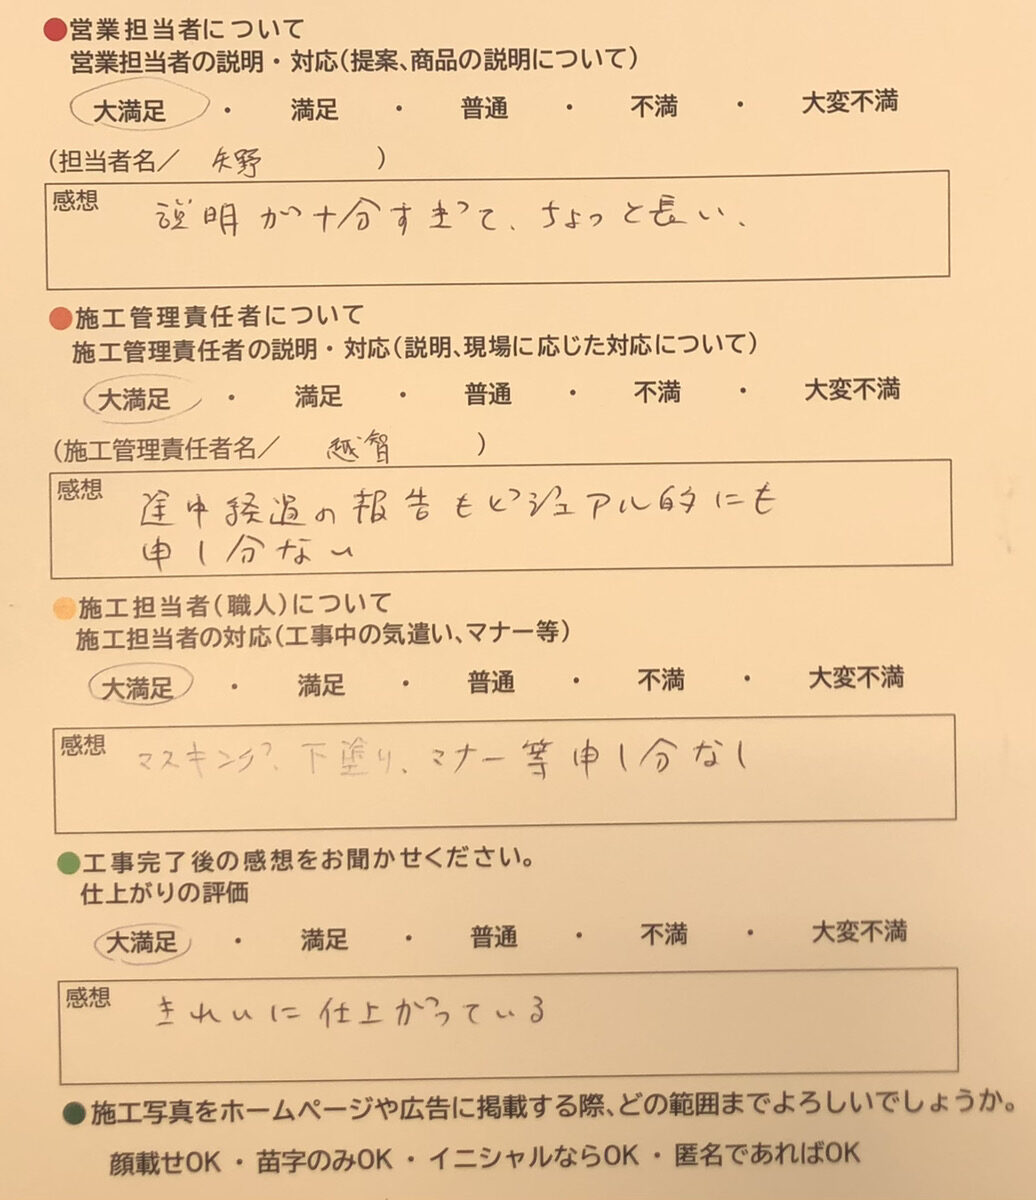 ●営業担当者について
営業担当者の説明・対応(提案、商品の説明について)
大満足 ・ 満足 ・ 普通 ・ 不満 ・ 大変不満
(担当者名／ 矢野 )
感想
説明が十分すぎて、ちょっと長い、
●施工管理責任者について
施工管理責任者の説明・対応(説明、現場に応じた対応について)
大満足 ・ 満足 ・ 普通 ・ 不満 ・ 大変不満
(施工管理責任者名／ 越智 )
感想
途中経過の報告もビジュアル的にも
申し分ない
●施工担当者(職人)について
施工担当者の対応(工事中の気遣い、マナー等)
大満足 ・ 満足 ・ 普通 ・ 不満 ・ 大変不満
感想
マスキング、下塗り、マナー等申し分なし
●工事完了後の感想をお聞かせください。
仕上がりの評価
大満足 ・ 満足 ・ 普通 ・ 不満 ・ 大変不満
感想
きれいに仕上がっている
●施工写真をホームページや広告に掲載する際、どの範囲までよろしいでしょうか。
顔載せOK ・ 苗字のみOK ・ イニシャルならOK ・ 匿名であればOK